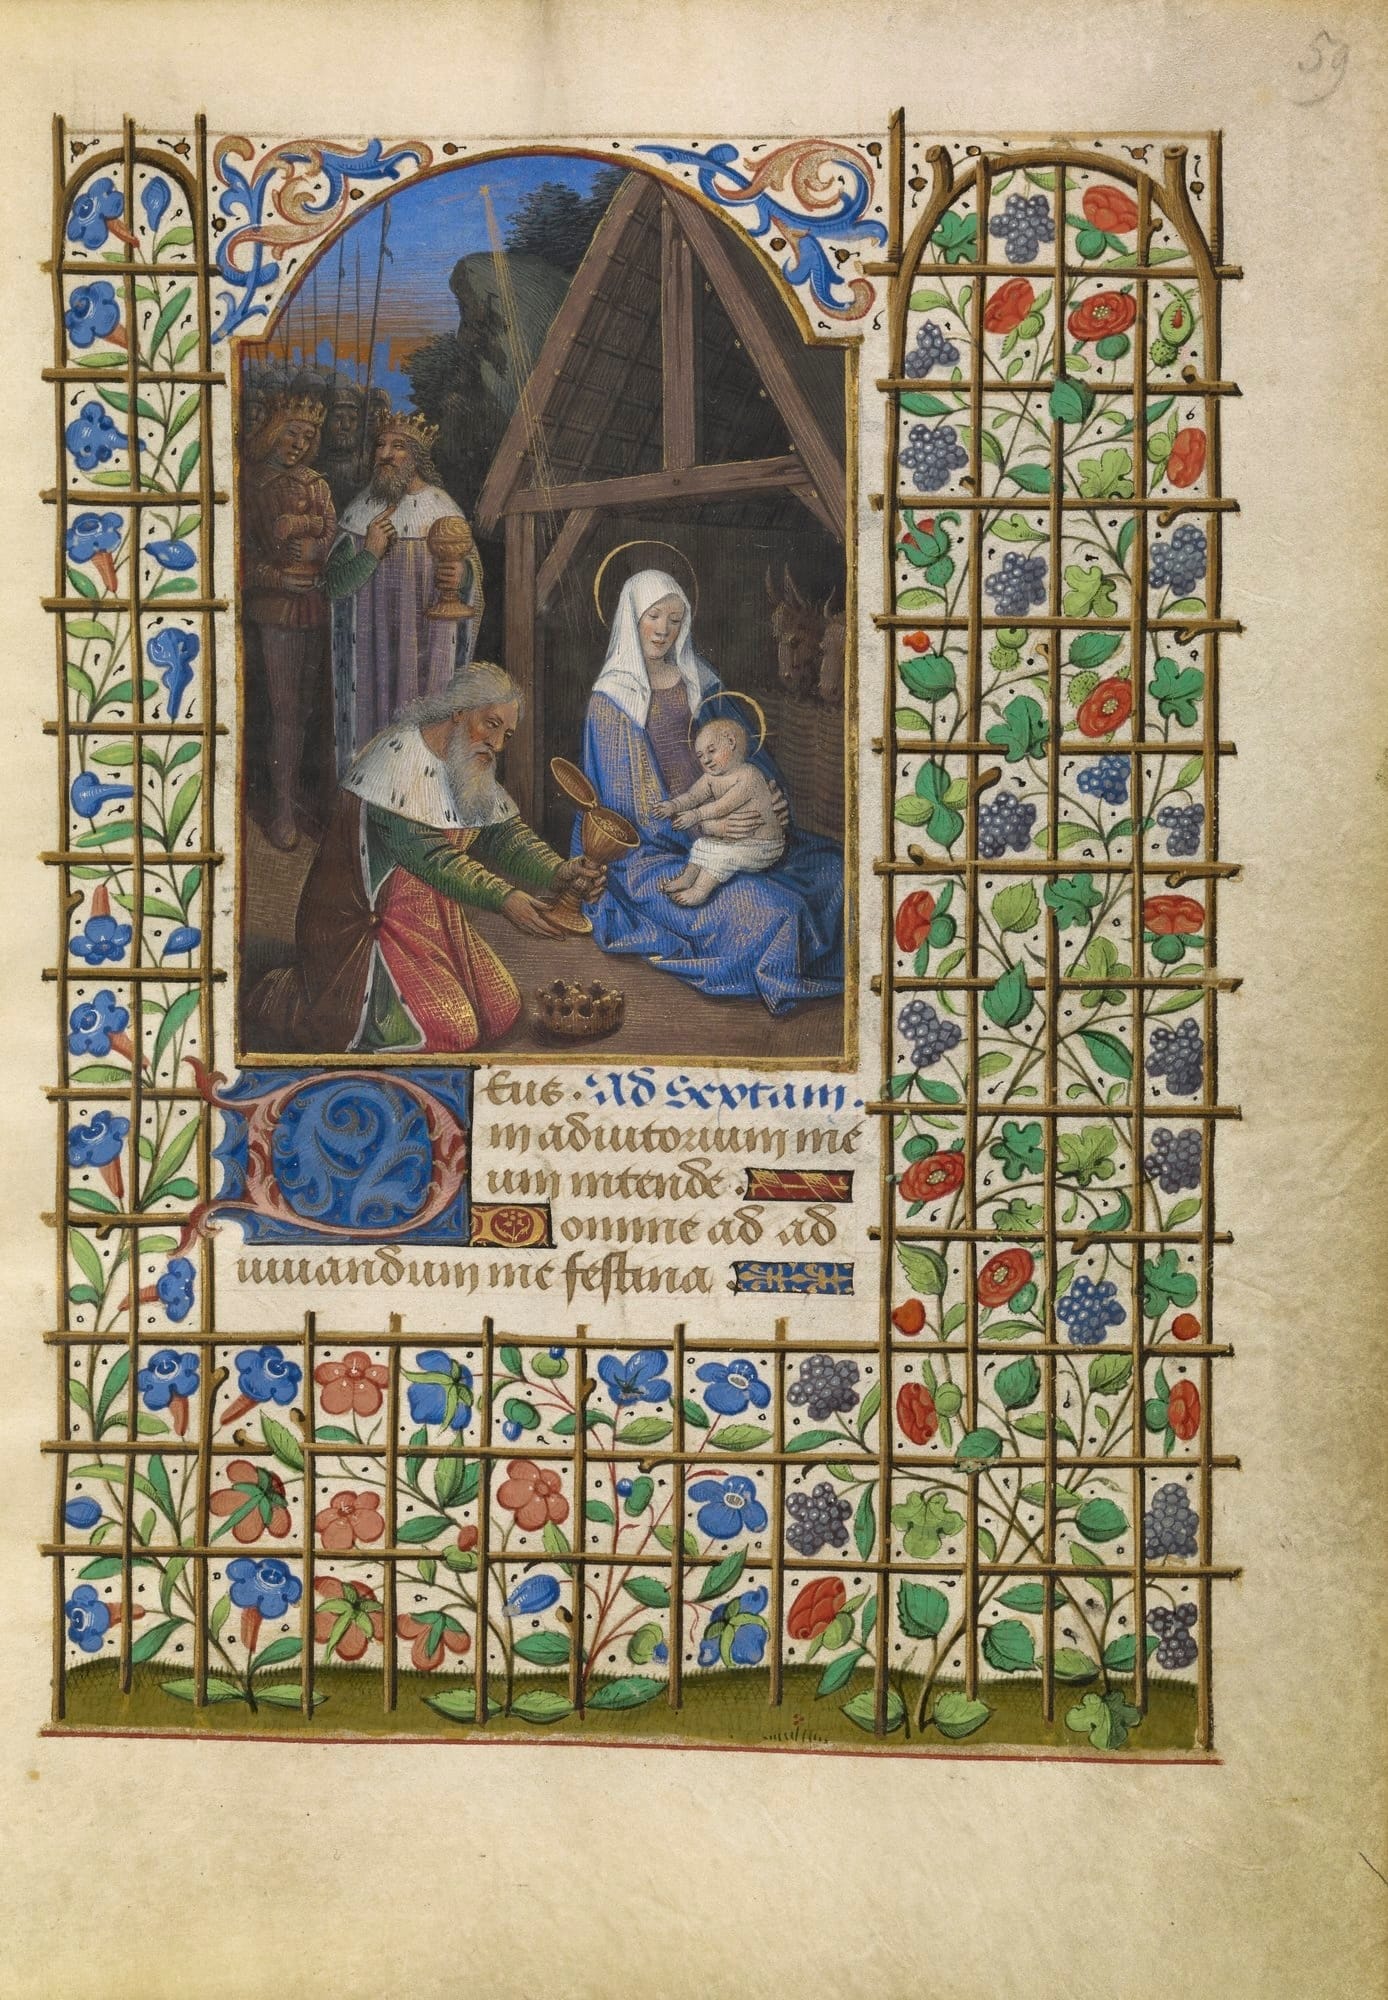 59
Deus. Ad Sextam.
in adiutorium me
um intende.
Domine ad ad
iuuandum me festina